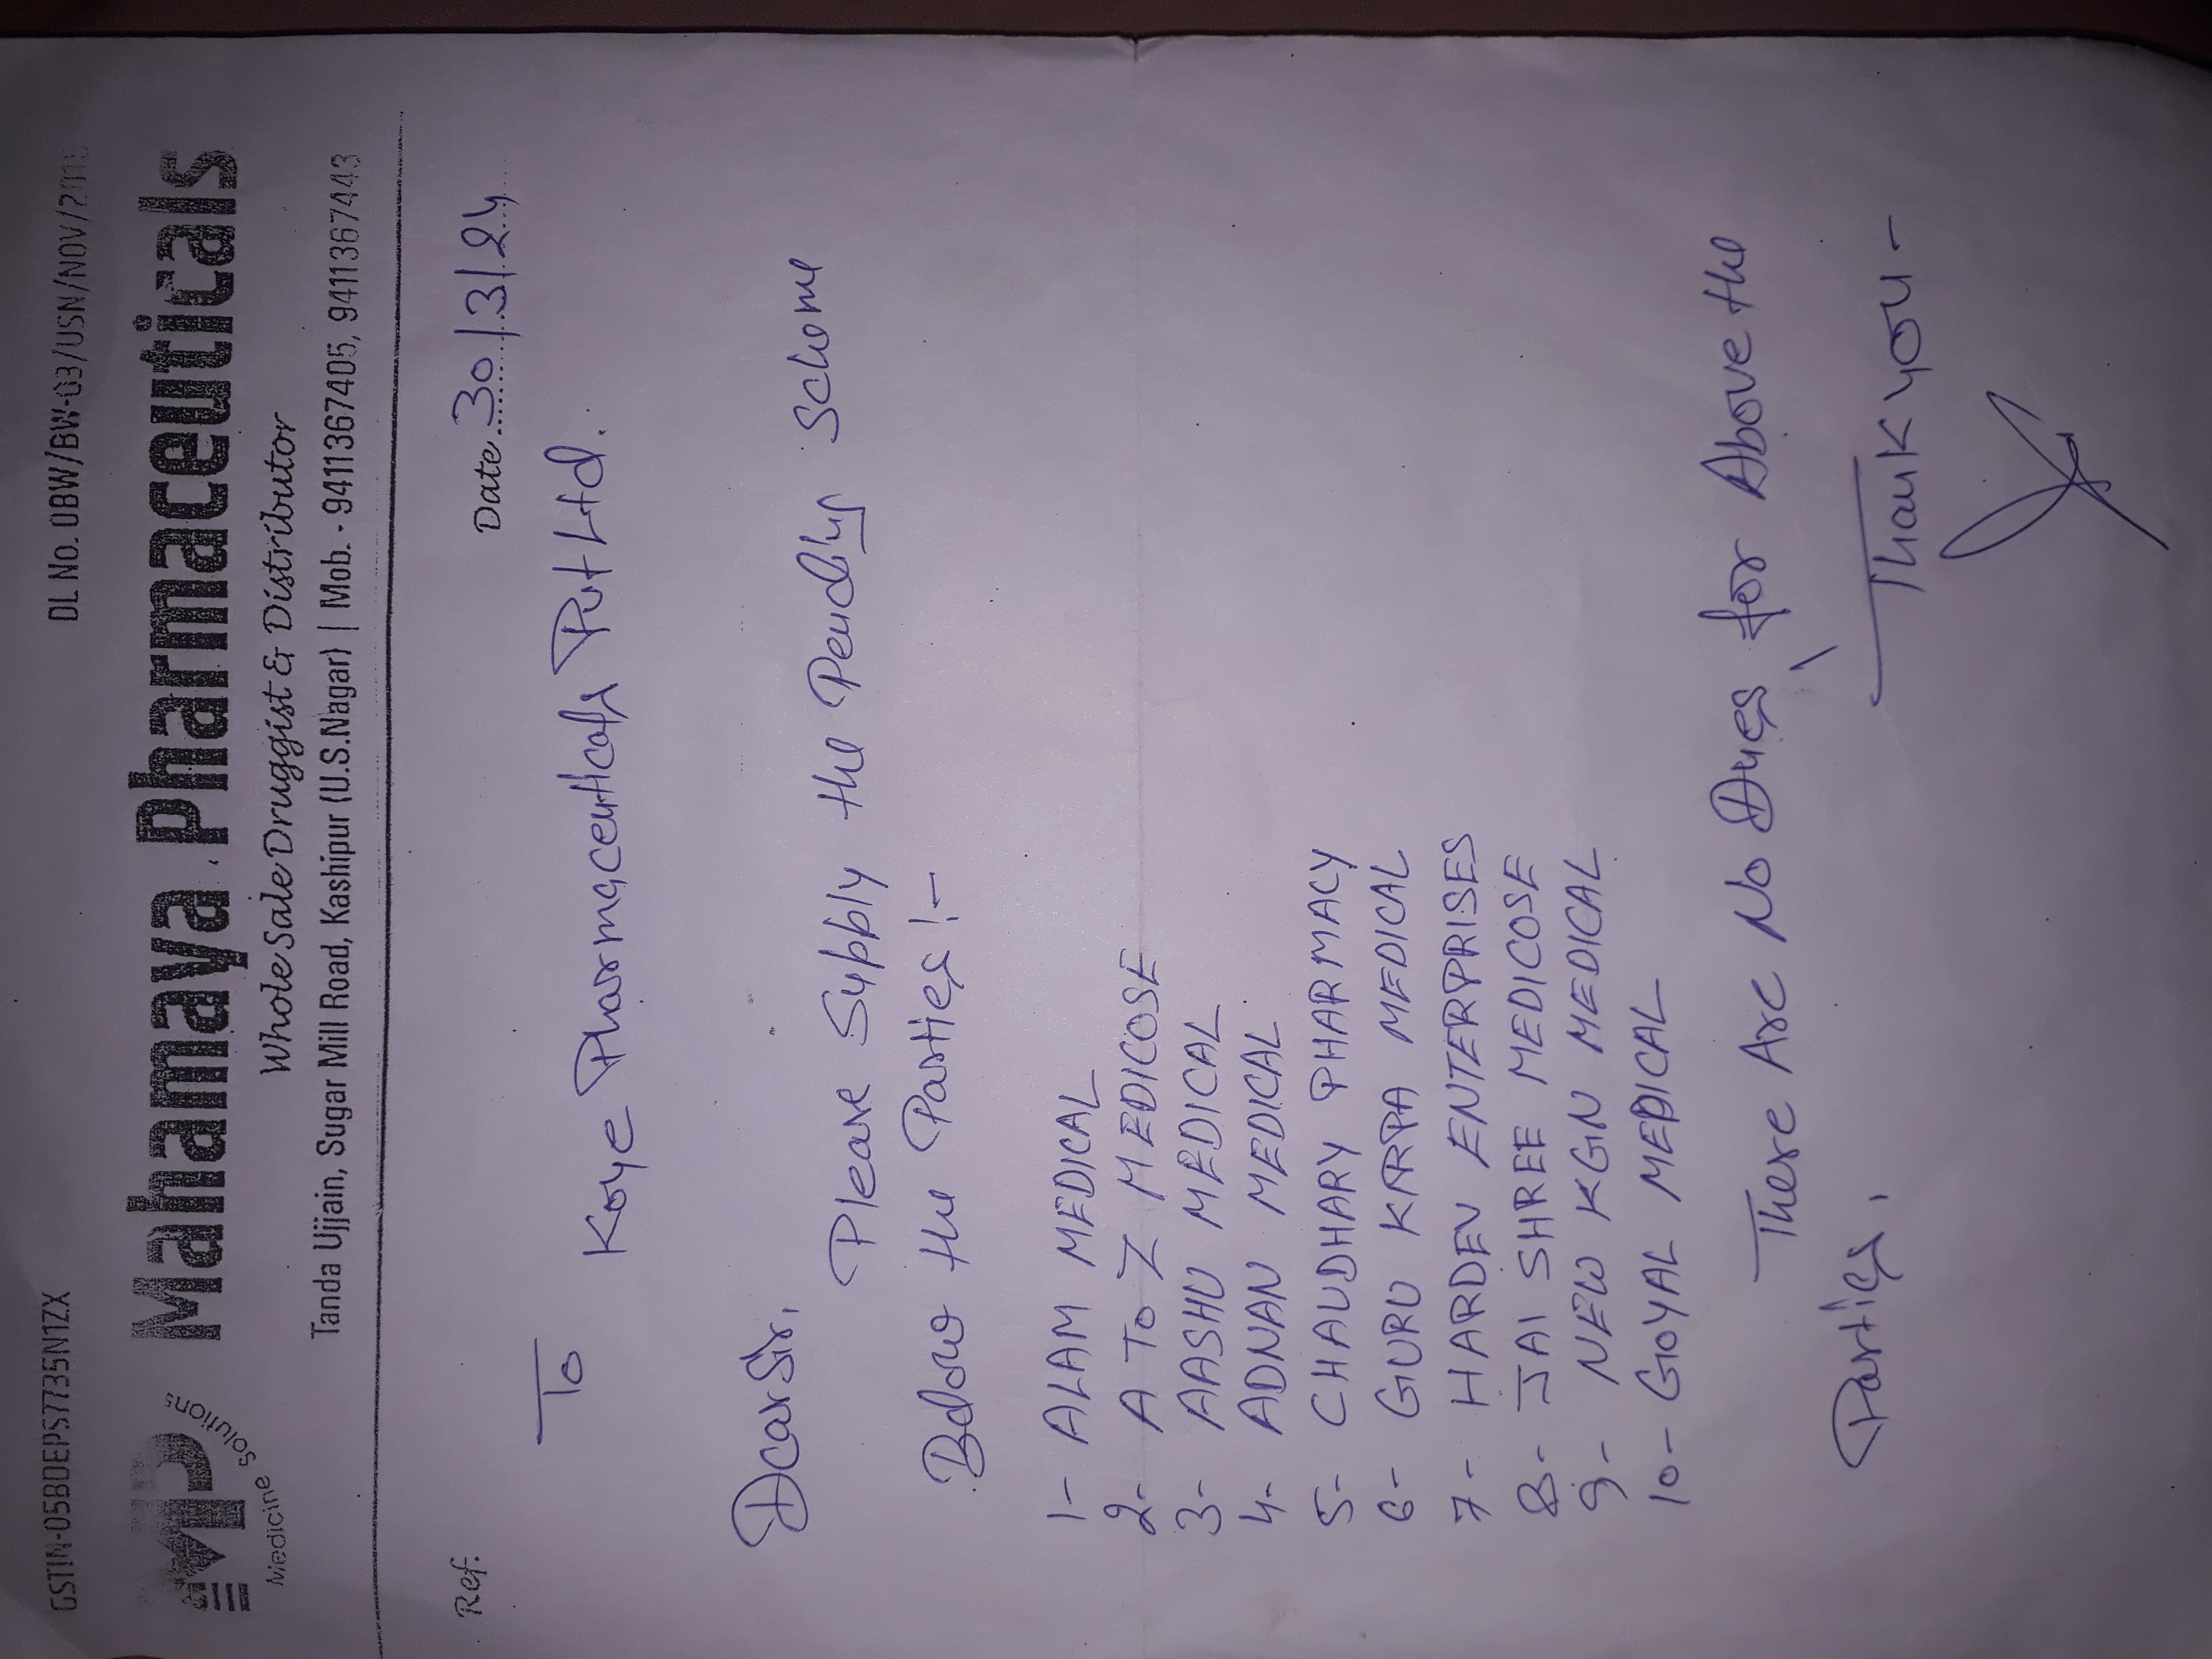 GSTIN-05BDEPS7735N1ZX DL No. OBW/BW-03/USN/NOV/
MP Mahamaya Pharmaceuticals
Medicine Solutions
Whole Sale Druggist & Distributor
Tanda Ujjain, Sugar Mill Road, Kashipur (U.S.Nagar) | Mob. - 9411367405, 9411367443
Ref. Date 30/3/24
To
Koye Pharmaceuticals Pvt Ltd.
Dear Sir,
Please Supply the Pending Scheme
Below the Parties :-
1- ALAM MEDICAL
2- A TO Z MEDICOSE
3- AASHU MEDICAL
4- ADNAN MEDICAL
5- CHAUDHARY PHARMACY
6- GURU KARPA MEDICAL
7- HARDEV ENTERPRISES
8- JAI SHREE MEDICOSE
9- NEW KGN MEDICAL
10- GOYAL MEDICAL
There Are No Dues, for Above the
Parties,
Thank you -